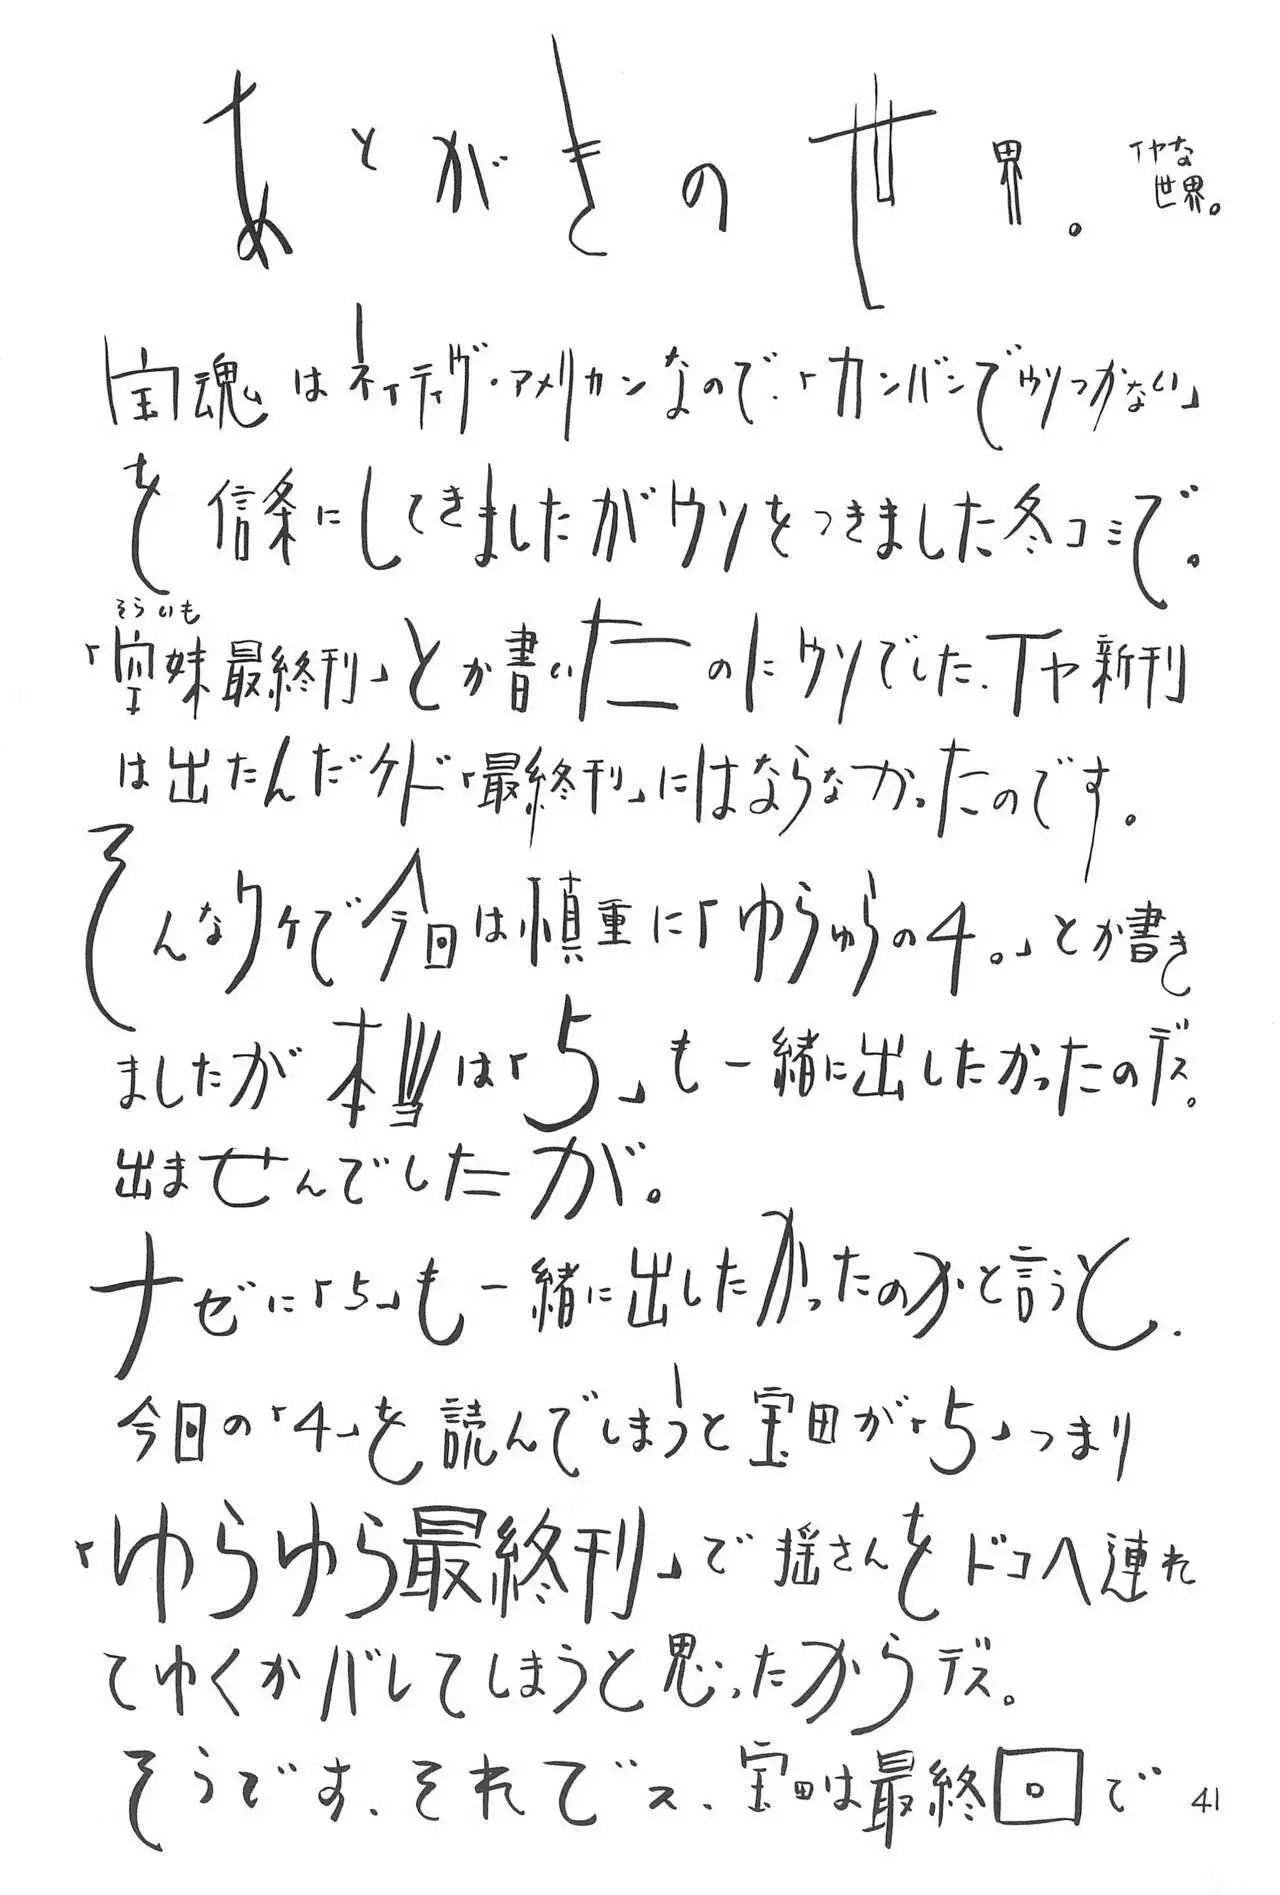 あとがきの世界。
イヤな
世界。
宝魂はネイティヴ・アメリカンなので、「カンバンでウソつかない」
を信条にしてきましたがウソをつきました冬コミで。
そらいも
「空妹最終刊」とか書いたのにウソでした、イヤ新刊
は出たんだケド「最終刊」にはならなかったのです。
そんなワケで今回は慎重に「ゆらゆらの4。」とか書き
ましたが本当は「5」も一緒に出したかったのデス。
出ませんでしたが。
ナゼに「5」も一緒に出したかったのかと言うと、
今回の「4」を読んでしまうと宝田が「5」つまり
「ゆらゆら最終刊」で揺さんをドコへ連れ
てゆくかバレてしまうと思ったからデス。
そうです、それでス、宝田は最終回で
41